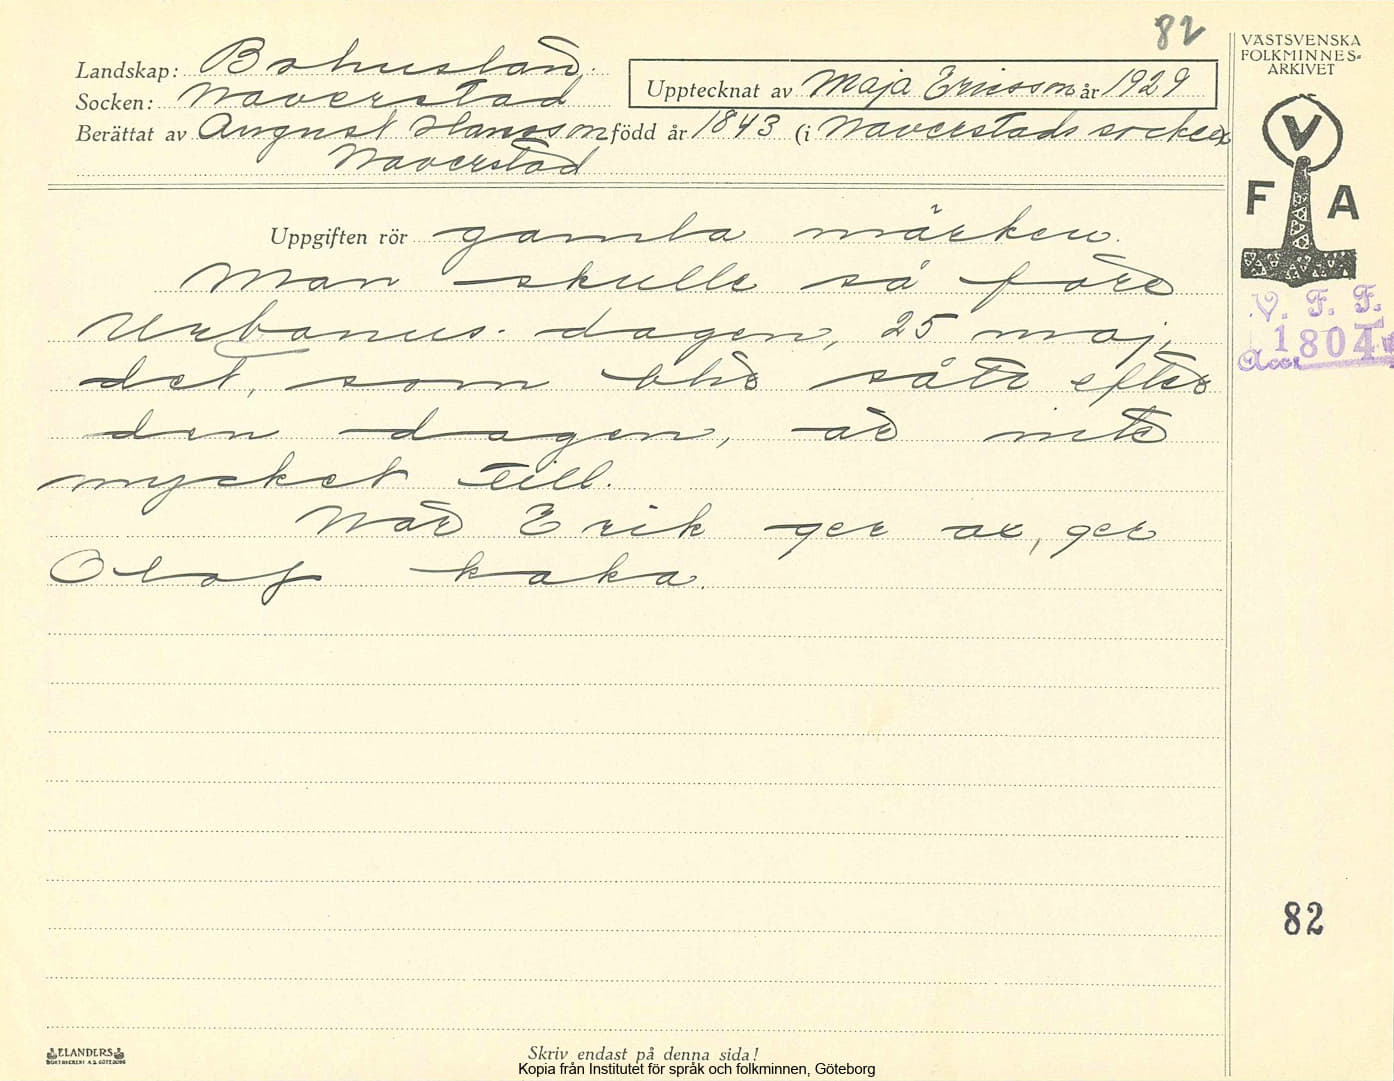 82
Landskap: Bohuslän.
Socken: Naverstad
Upptecknat av Maja Ericsson år 1929
Berättat av August Hansson född år 1843 (i Naverstads socken
Naverstad
VÄSTSVENSKA
FOLKMINNES-
ARKIVET
V
F A
V. F. F.
Acc. 1804
Uppgiften rör gamla märken.
Man skulle så före
Urbanus-dagen, 25 maj,
det, som blir sått efter
den dagen, är inte
mycket till.
När Erik ger ax, ger
Olof kaka.
82
ELANDERS
BOKTRYCKERI A.B. GÖTEBORG
Skriv endast på denna sida!
Kopia från Institutet för språk och folkminnen, Göteborg